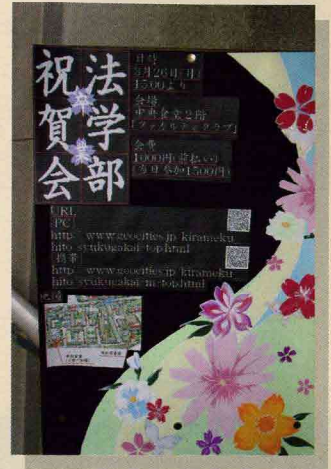 法学部
卒業
祝賀会
日時
3月26日(月)
15:00より
会場
中央食堂2階
「ファカルティクラブ」
会費
1000円(前払い)
(当日参加1500円)
URL
[PC]
http www.geocities.jp kirameku
hito_syukugakai top.html
携帯
http www.geocities.jp kirameku
hito_syukugakai m top.html
地図